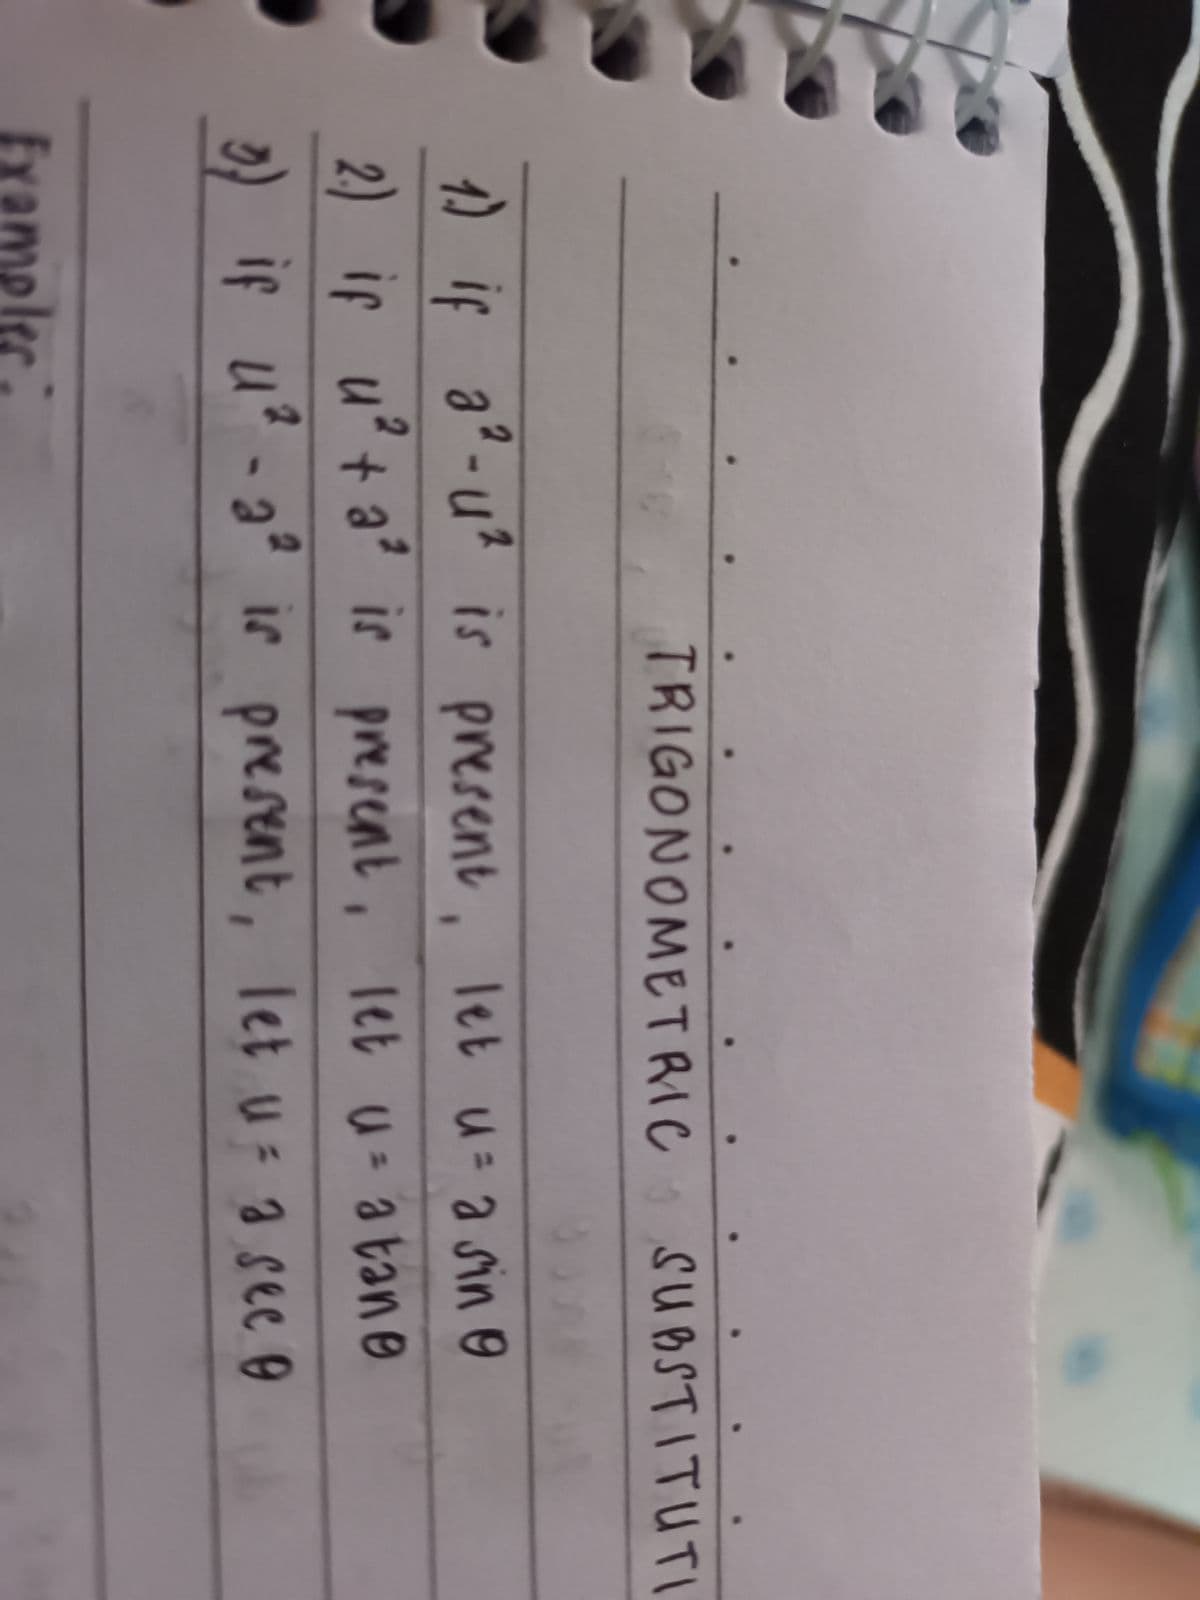 TRIGONOMETRIC SUBSTITUTI
1.) if a² - u² is present, let u = a sin θ
2.) if u² + a² is present, let u = a tan θ
3.) if u² - a² is present, let u = a sec θ
Examples: